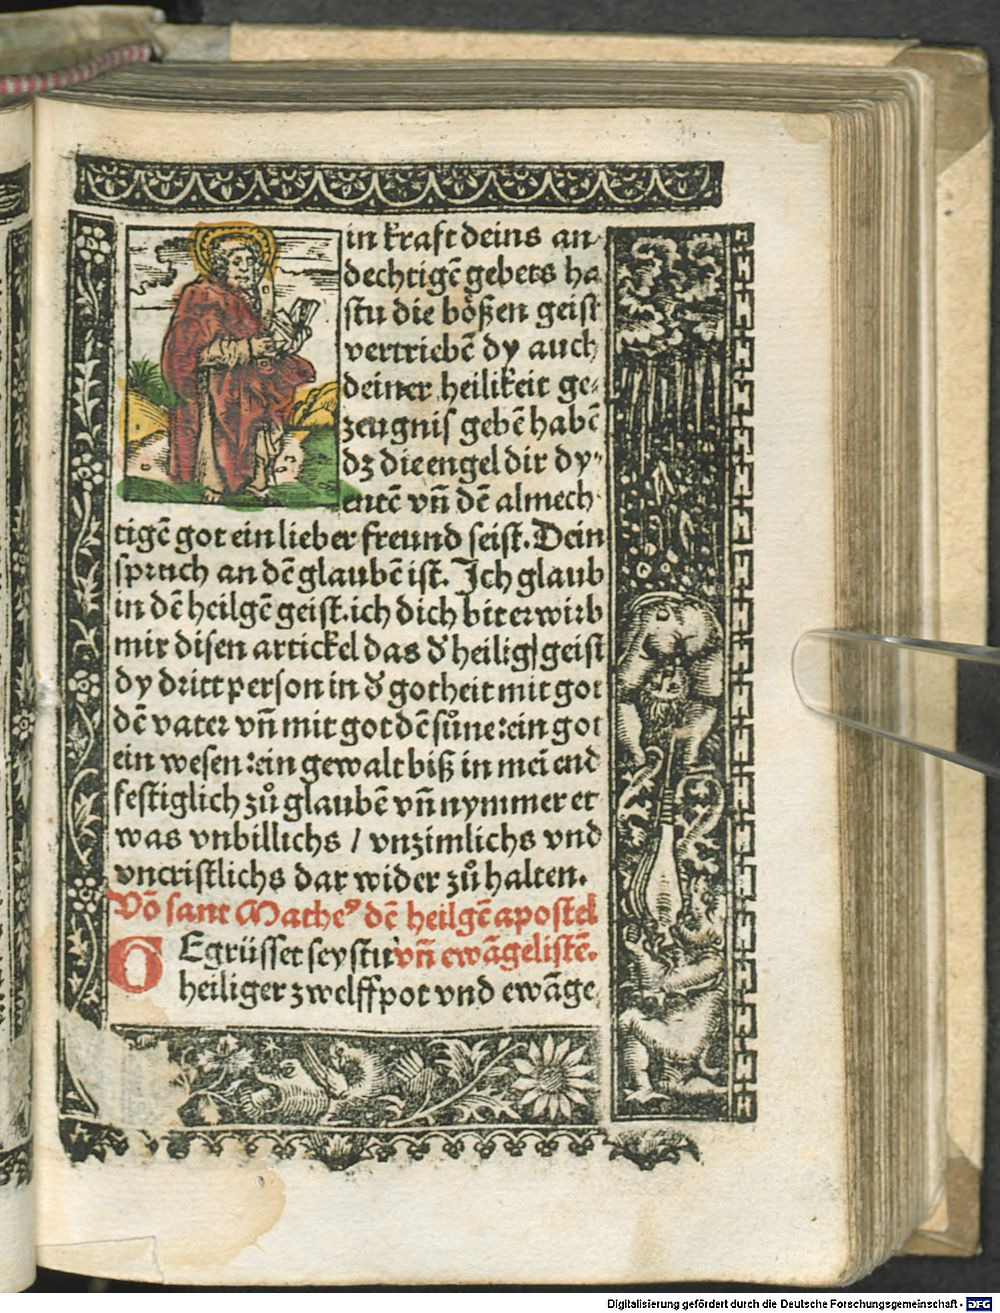 in kraft deins an⸗
dechtigē gebets ha
stu die bößen geist
vertriebē dy auch
deiner heilikeit ge⸗
zeugnis gebē habē
dz die engel dir dy⸗
entē vñ dē almech⸗
tigē got ein lieber freund seist. Dein
spruch an dē glaubē ist. Ich glaub
in dē heilgē geist. ich dich bit erwirb
mir disen artickel das d' heilig geist
dy dritt person in d' gotheit mit got
dē vater vñ mit got dē sůne: ein got
ein wesen: ein gewalt biß in mei end
festiglich zů glaubē vñ nymmer et
was vnbillichs / vnzimlichs vnd
vncristlichs dar wider zů halten.
Võ sant Matheꝰ dē heilgē apostel
GEgrüsset sey stu vñ ewãgelistē.
heiliger zwelffpot vnd ewãge
Digitalisierung gefördert durch die Deutsche Forschungsgemeinschaft - DFG